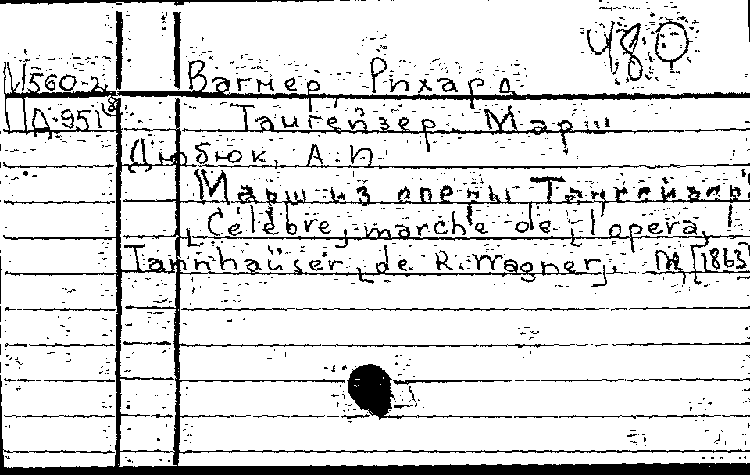 Ч8.О
М560-2 Вагнер, Рихард
Д-951(8) Тангейзер. Марш
Дюбюк, А. И
Марш из оперы Тангейзер
Célèbre marche de l'opera,
Tannhaüser, de R. Wagner. М, [1863]